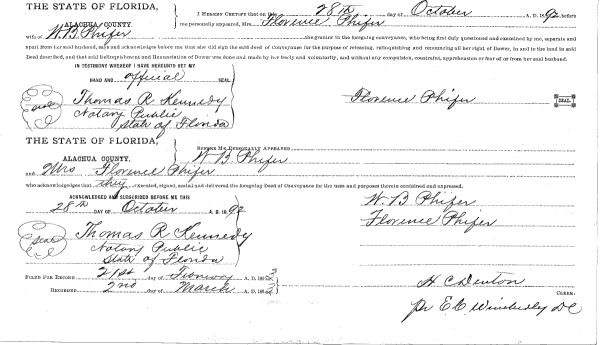 THE STATE OF FLORIDA,
ALACHUA COUNTY.
I HEREBY CERTIFY that on this 28th day of October A. D. 1892, before
me personally appeared, Mrs. Florence Phifer
wife of W. B. Phifer the grantor in the foregoing conveyance, who being first duly questioned and examined by me, separate and
apart from her said husband, says and acknowledges before me that she did sign the said deed of Conveyance for the purpose of releasing, relinquishing and renouncing all her right of Dower, in and to the land in said
Deed described, and that said Relinquishment and Renunciation of Dower was done and made by her freely and voluntarily, and without any compulsion, constraint, apprehension or fear of or from her said husband.
IN TESTIMONY WHEREOF I HAVE HEREUNTO SET MY
HAND AND official SEAL
seal
Thomas R Kennedy
Notary Public
State of Florida
Florence Phifer SEAL.
THE STATE OF FLORIDA,
ALACHUA COUNTY.
BEFORE ME PERSONALLY APPEARED W B Phifer
and Mrs Florence Phifer
who acknowledges that they executed, signed, sealed and delivered the foregoing Deed of Conveyance for the uses and purposes therein contained and expressed.
ACKNOWLEDGED AND SUBSCRIBED BEFORE ME THIS
28th DAY OF October A. D. 1892
W. B Phifer
Florence Phifer
seal
Thomas R Kennedy
Notary Public
State of Florida
FILED FOR RECORD 21st day of A. D. 1893
RECORDED 2nd day of March A. D. 1893
H C Denton
CLERK.
pr E. C. Wimberly DC